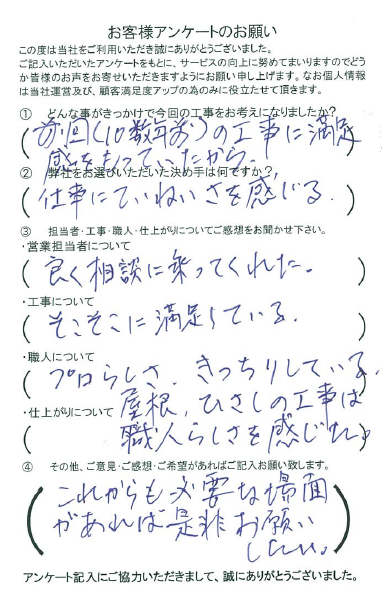 お客様アンケートのお願い
この度は当社をご利用いただき誠にありがとうございました。
ご記入いただいたアンケートをもとに、サービスの向上に努めてまいりますのでどう
か皆様のお声をお寄せいただきますようにお願い申し上げます。なお個人情報
は当社運営及び、顧客満足度アップの為のみに役立たせて頂きます。
① どんな事がきっかけで今回の工事をお考えになりましたか?
(前回(10数年前)の工事に満足
感をもっていたから。)
② 弊社をお選びいただいた決め手は何ですか?
(仕事にていねいさを感じる。)
③ 担当者・工事・職人・仕上がりについてご感想をお聞かせ下さい。
・営業担当者について
(良く相談に乗ってくれた。)
・工事について
(そこそこに満足している。)
・職人について
(プロらしさ、きっちりしている。)
・仕上がりについて
(屋根、ひさしの工事は
職人らしさを感じた。)
④ その他、ご意見・ご感想・ご希望があればご記入お願い致します。
(これからも必要な場面
があれば是非お願い
したい。)
アンケート記入にご協力いただきまして、誠にありがとうございました。